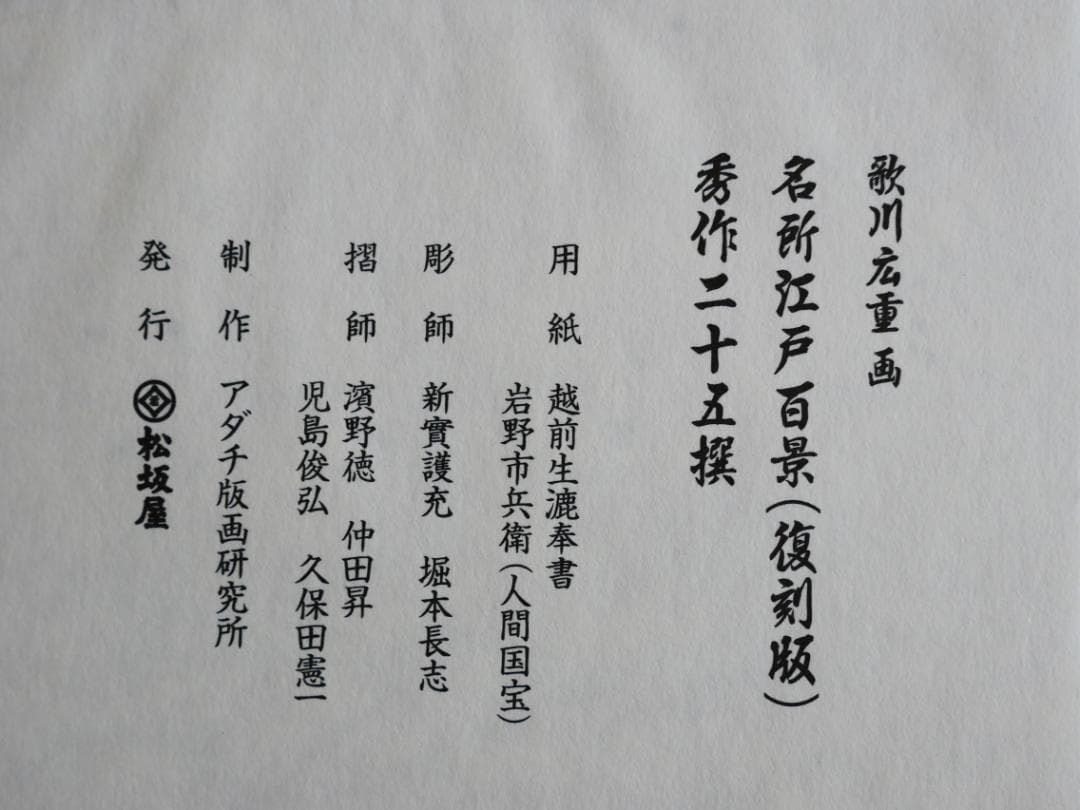 歌川広重画
名所江戸百景（復刻版）
秀作二十五撰
用紙 越前生漉奉書
岩野市兵衛（人間国宝）
彫師 新實護充 堀本長志
摺師 濱野徳 仲田昇
児島俊弘 久保田憲一
制作 アダチ版画研究所
発行 松坂屋